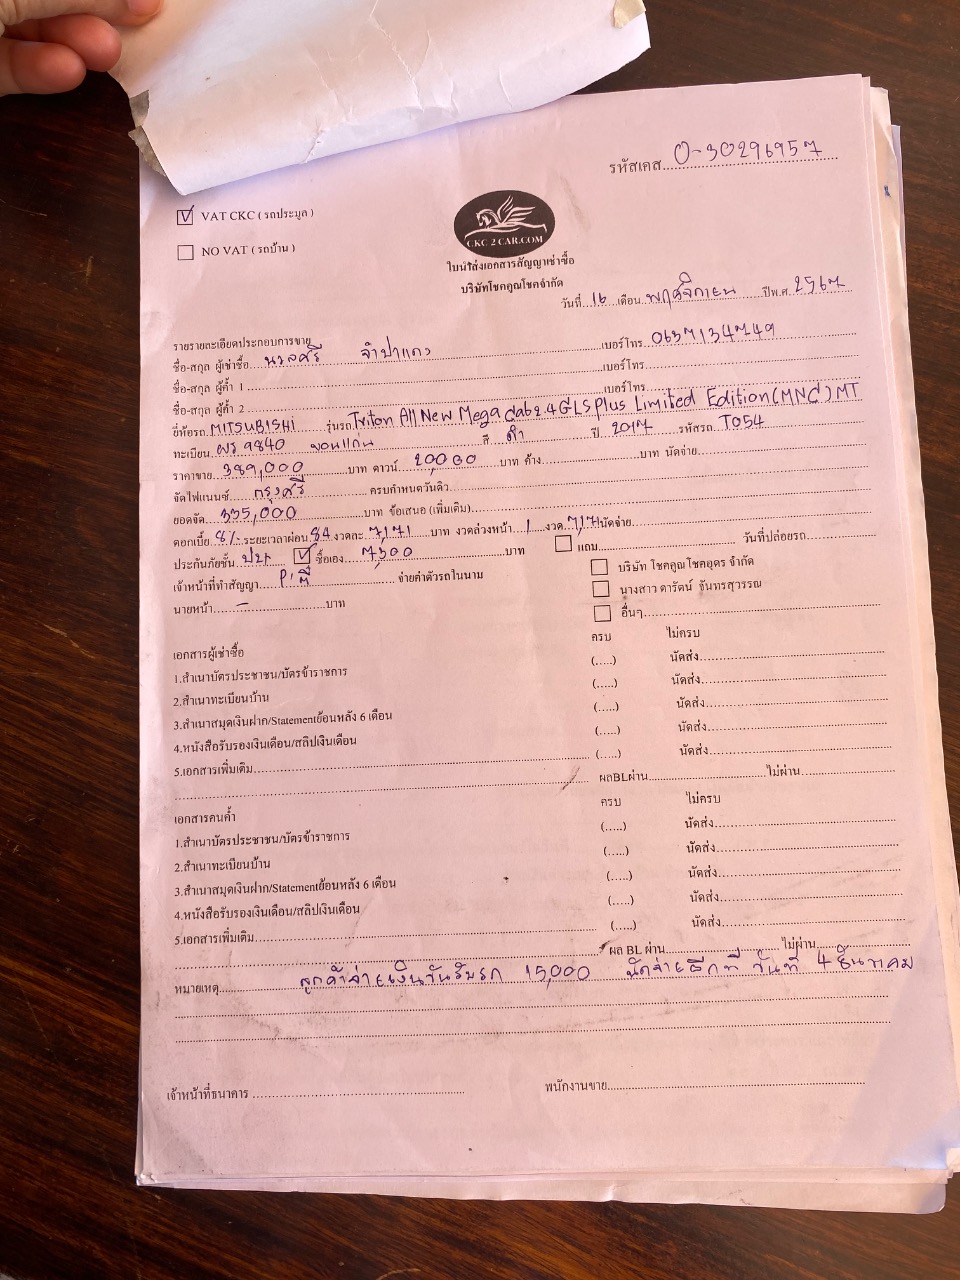 รหัสเคส.....O-30296957
☑ VAT CKC ( รถประมูล )
☐ NO VAT ( รถบ้าน )
CKC 2 CAR.COM
ใบนำส่งเอกสารสัญญาเช่าซื้อ
บริษัทโชคคูณโชคจำกัด
วันที่..16...เดือน..พฤศจิกายน......ปีพ.ศ.2567
รายรายละเอียดประกอบการขาย
ชื่อ-สกุล ผู้เช่าซื้อ...นวลศรี จำปาแดง.....เบอร์โทร...0637134749
ชื่อ-สกุล ผู้ค้ำ 1.....เบอร์โทร.....
ชื่อ-สกุล ผู้ค้ำ 2.....เบอร์โทร.....
ยี่ห้อรถ..MITSUBISHI.....รุ่นรถ.Triton All New Mega cab 2.4 GLS Plus Limited Edition (MNC) MT
ทะเบียน 9840 ขอนแก่น สี ดำ ปี 2017 รหัสรถ T054
ราคาขาย..389,000.....บาท ดาวน์..20,000.....บาท ค้าง.....บาท นัดจ่าย.....
จัดไฟแนนซ์...กรุงศรี.....ครบกำหนดวันดิว.....
ยอดจัด...335,000.....บาท ข้อเสนอ (เพิ่มเติม).....
ดอกเบี้ย 8% ระยะเวลาผ่อน 84 งวดละ 7171 บาท งวดล่วงหน้า 1 งวด 7,171 นัดจ่าย.....
ประกันภัยชั้น ☑ ซื้อเอง 7,500 บาท ☐ แถม..... วันที่ปล่อยรถ.....
เจ้าหน้าที่ทำสัญญา.....P'.....จ่ายค่าตัวรถในนาม ☐ บริษัท โชคคูณโชคอุดร จำกัด
นายหน้า...-.....บาท ☐ นางสาว ดารัตน์ จันทรสุวรรณ
☐ อื่นๆ.....
เอกสารผู้เช่าซื้อ ครบ ไม่ครบ
1.สำเนาบัตรประชาชน/บัตรข้าราชการ (.....) นัดส่ง.....
2.สำเนาทะเบียนบ้าน (.....) นัดส่ง.....
3.สำเนาสมุดเงินฝาก/Statementย้อนหลัง 6 เดือน (.....) นัดส่ง.....
4.หนังสือรับรองเงินเดือน/สลิปเงินเดือน (.....) นัดส่ง.....
5.เอกสารเพิ่มเติม..... (.....) นัดส่ง.....
ผลBLผ่าน.....ไม่ผ่าน.....
เอกสารคนค้ำ ครบ ไม่ครบ
1.สำเนาบัตรประชาชน/บัตรข้าราชการ (.....) นัดส่ง.....
2.สำเนาทะเบียนบ้าน (.....) นัดส่ง.....
3.สำเนาสมุดเงินฝาก/Statementย้อนหลัง 6 เดือน (.....) นัดส่ง.....
4.หนังสือรับรองเงินเดือน/สลิปเงินเดือน (.....) นัดส่ง.....
5.เอกสารเพิ่มเติม..... (.....) นัดส่ง.....
ผล BL ผ่าน..... ไม่ผ่าน.....
หมายเหตุ.....ลูกค้าจ่ายเงินวันรับรถ 15,000 นัดจ่ายอีกที วันที่ 4 ธันวาคม
เจ้าหน้าที่ธนาคาร ..... พนักงานขาย.....